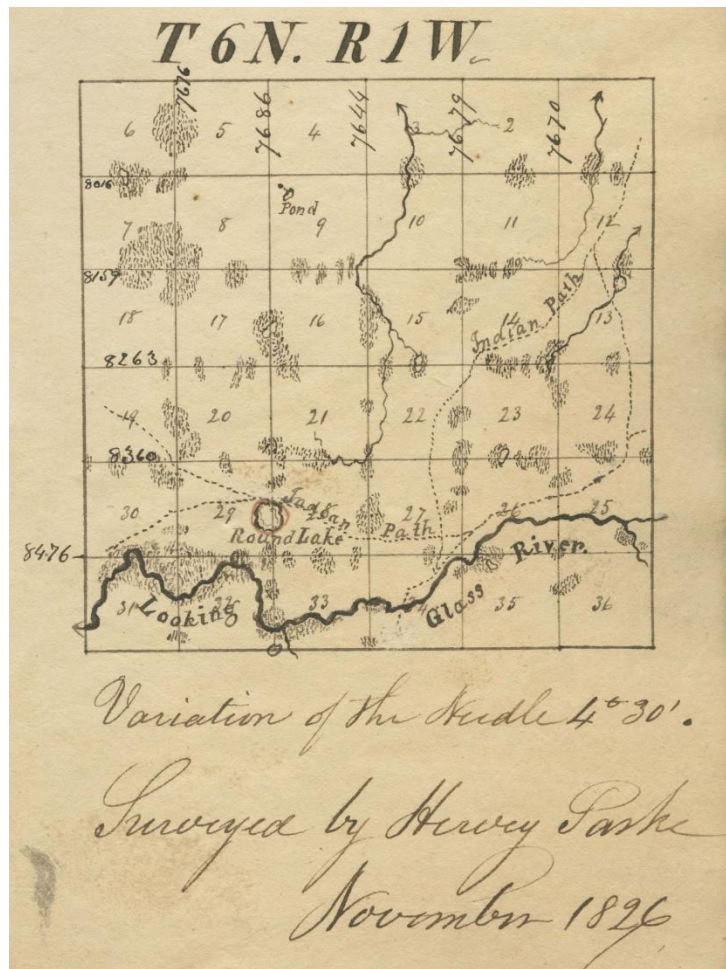 T 6 N. R 1 W.
7686
7644
7679
7670
6 5 4 3 2
8016
Pond
7 8 9 10 11 12
8159
18 17 16 15 14 13
Indian Path
8263
19 20 21 22 23 24
8360
30 29 28 27 26 25
Indian Path
Round Lake
8476
31 32 33 34 35 36
Looking Glass River.
Variation of the Needle 4° 30'.
Surveyed by Hervey Parke
November 1826